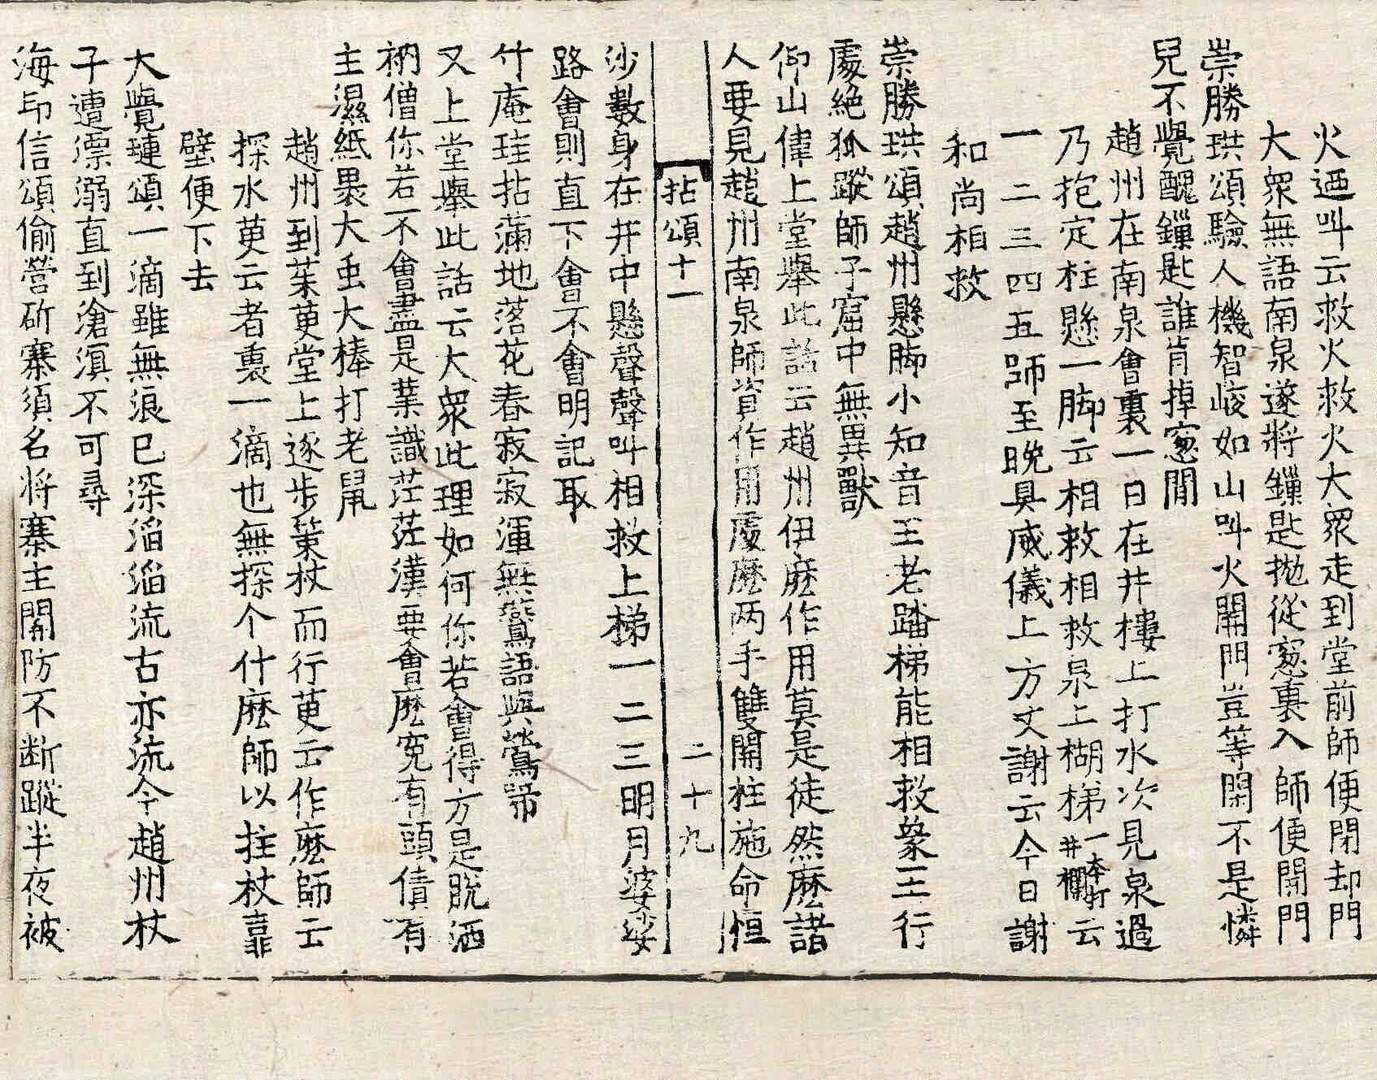 火迺叫云救火救火大眾走到堂前師便閉却門
大眾無語南泉遂將鏁匙拋從窓裏入師便開門
崇勝珙頌驗人機智峻如山叫火開門豈等閑不是憐
兒不覺醜鏁匙誰肯掉窓間
趙州在南泉會裏一日在井樓上打水次見泉過
乃抱定柱懸一脚云相救相救泉上楜梯一本打井欄云
一二三四五師至晚具威儀上方丈謝云今日謝
和尚相救
崇勝珙頌趙州懸脚小知音王老踏梯能相救衆王行
處絕狐蹤師子窟中無異獸
仰山偉上堂舉此話云趙州伊麽作用莫是徒然麽諸
人要見趙州南泉師資作用處麽两手雙開柱施命恒
拈頌十一 二十九
沙數身在井中懸聲聲叫相救上梯一二三明月婆娑
路會則直下會不會明記取
竹庵珪拈滿地落花春寂寂渾無鷰語與鶯啼
又上堂舉此話云大眾此理如何你若會得方是脫洒
衲僧你若不會盡是業識茫茫漢要會麽寃有頭債有
主濕紙裹大虫大棒打老鼠
趙州到茱萸堂上逐步策杖而行萸云作麽師云
探水萸云者裏一滴也無探个什麽師以拄杖靠
壁便下去
大覺璉頌一滴雖無浪已深滔滔流古亦流今趙州杖
子遭漂溺直到滄溟不可尋
海印信頌偷營斫寨須名將寨主開防不断蹤半夜被